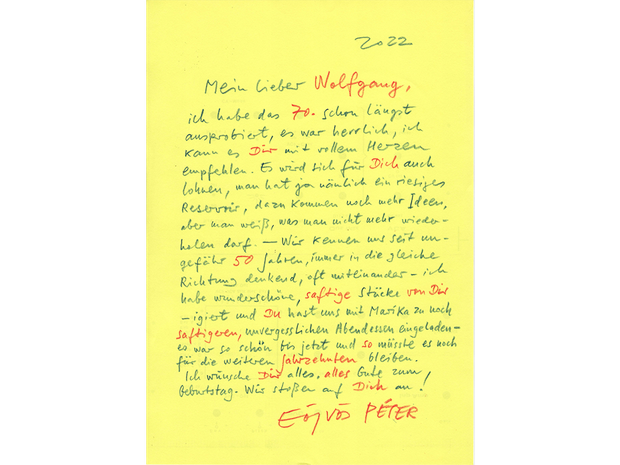 2022
Mein lieber Wolfgang,
ich habe das 70. schon längst
ausprobiert, es war herrlich, ich
kann es Dir mit vollem Herzen
empfehlen. Es wird sich für Dich auch
lohnen, man hat ja nämlich ein riesiges
Reservoir, dazu kommen noch mehr Ideen,
aber man weiß, was man nicht mehr wieder-
holen darf. — Wir kennen uns seit un-
gefähr 50 Jahren, immer in die gleiche
Richtung denkend, oft miteinander - ich
habe wunderschöne, saftige Stücke von Dir
- igiert und Du hast uns mit Marika zu noch
saftigeren, unvergesslichen Abendessen eingeladen -
es war so schön bis jetzt und so müsste es noch
für die weiteren Jahrzehnten bleiben.
Ich wünsche Dir alles, alles Gute zum
Geburtstag. Wir stoßen auf Dich an!
Eötvös PÉTER